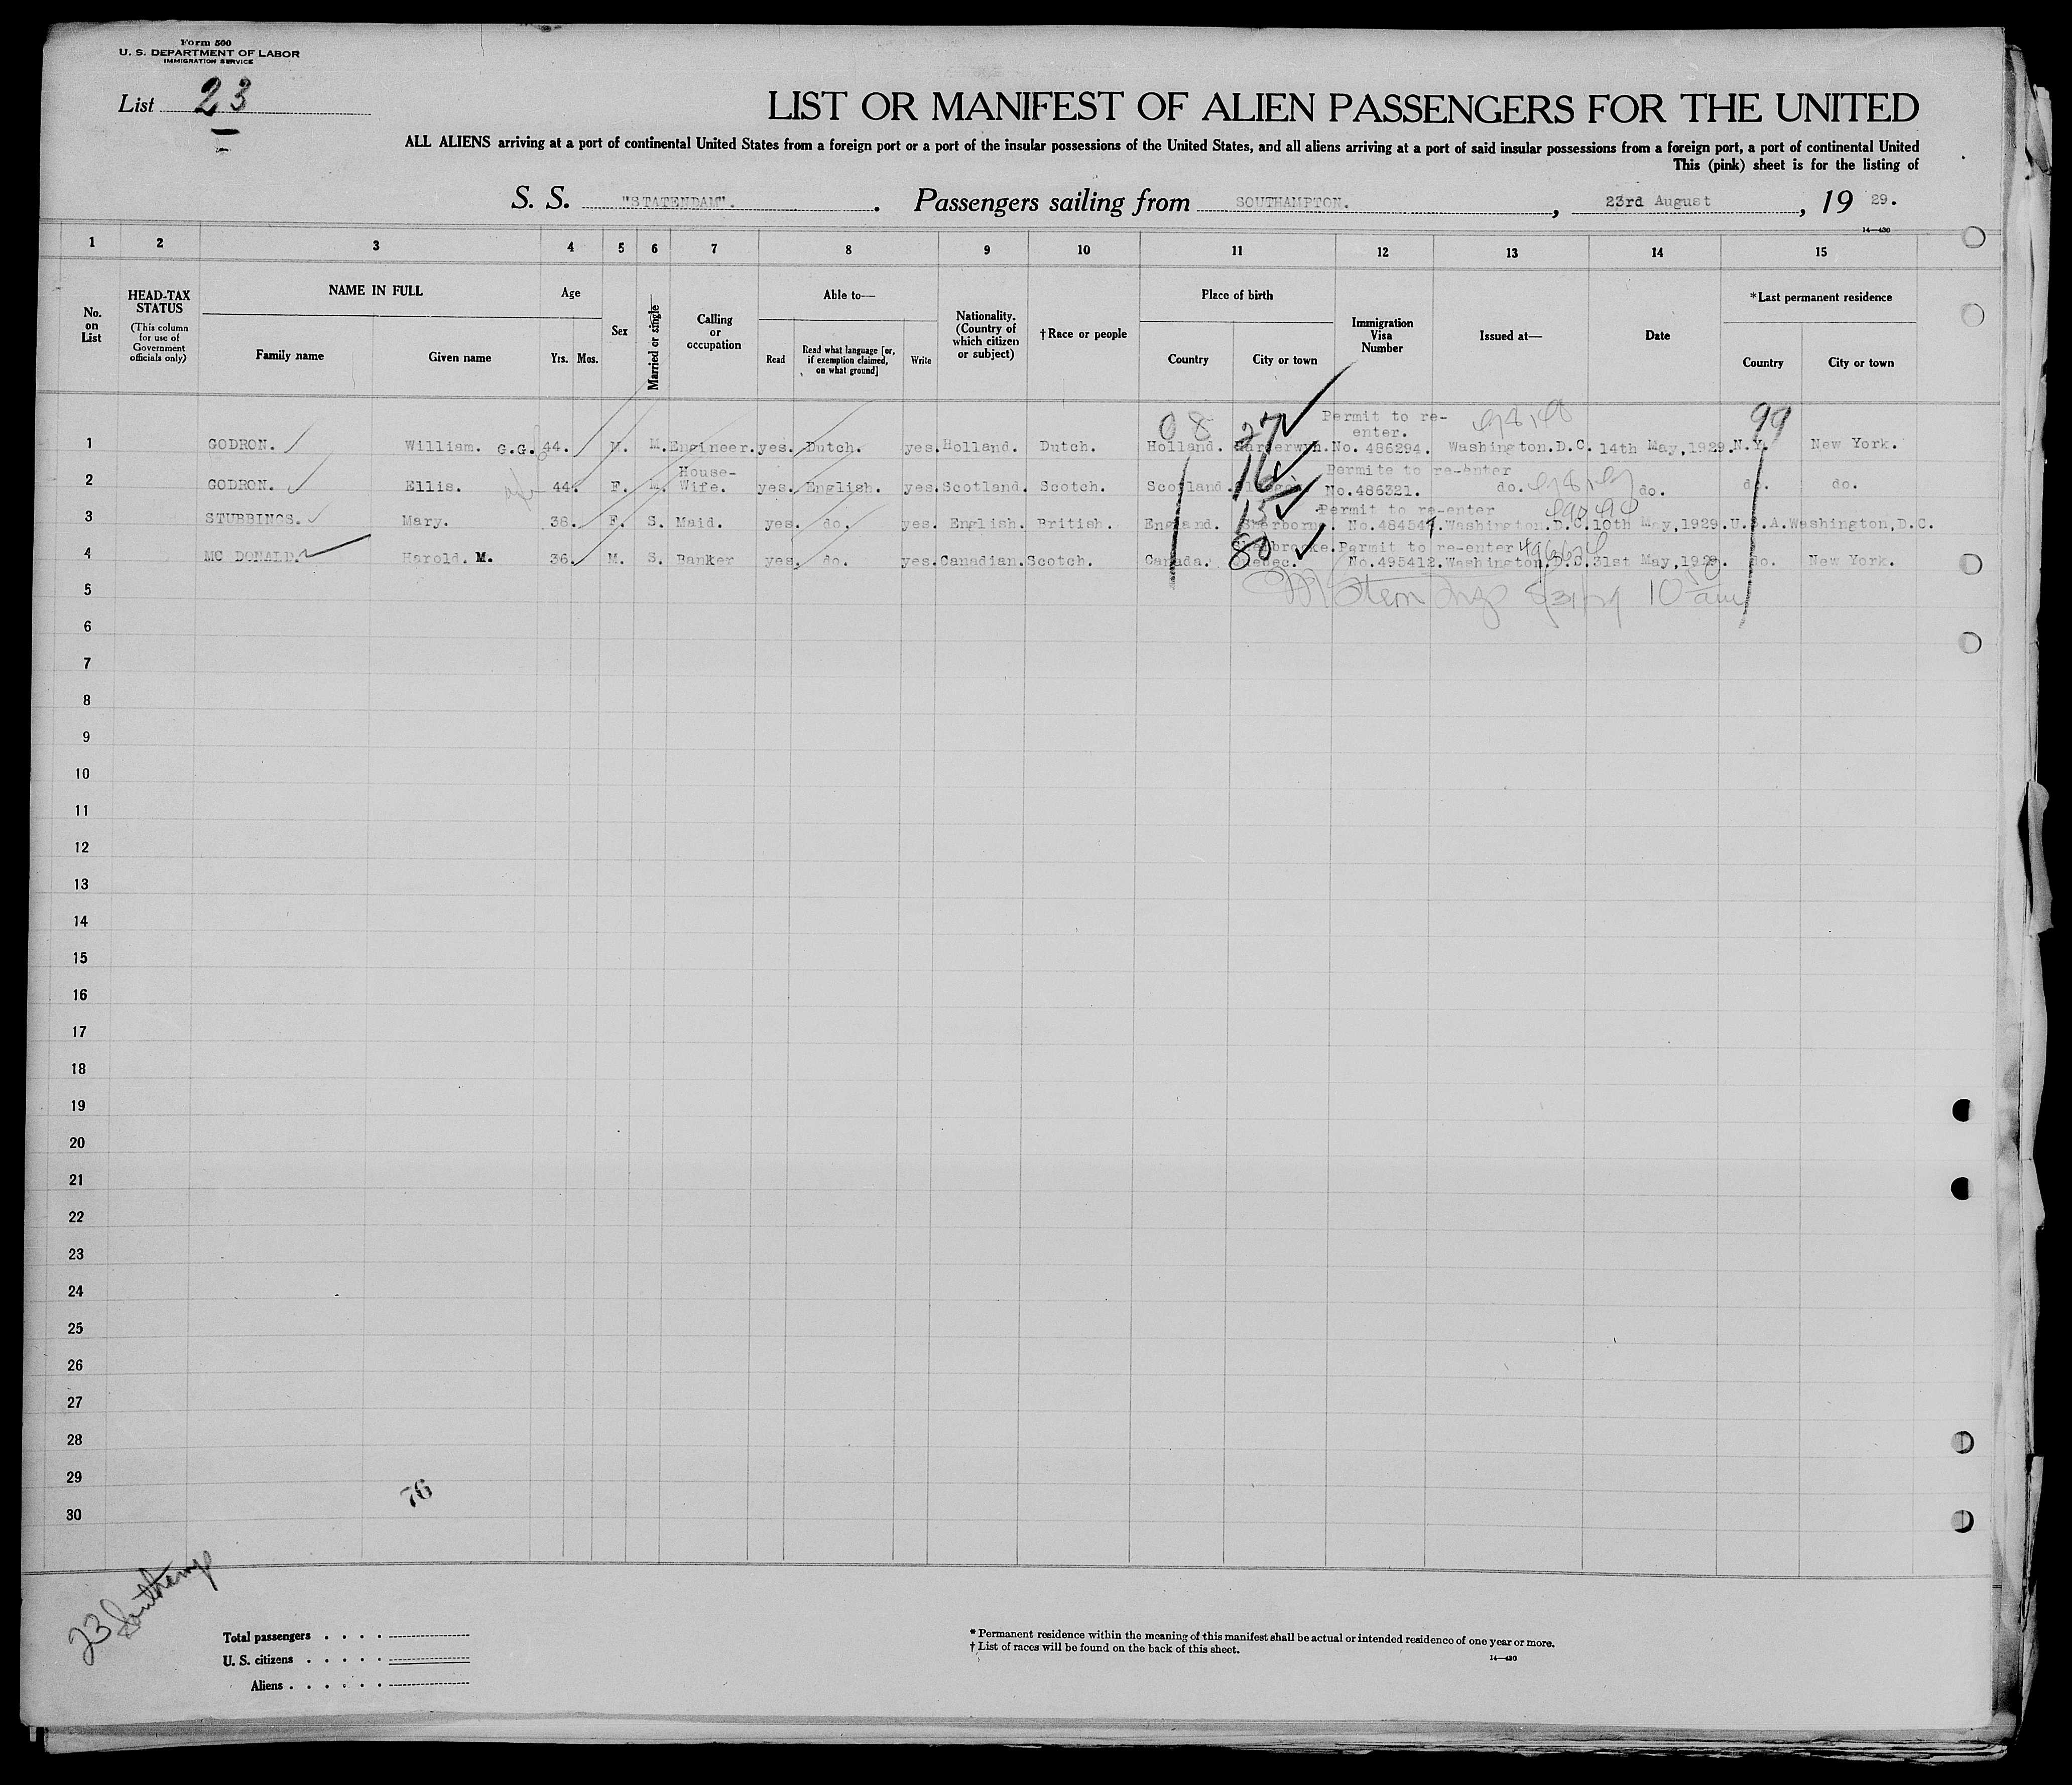 Form 500
U. S. DEPARTMENT OF LABOR
IMMIGRATION SERVICE
List 23
LIST OR MANIFEST OF ALIEN PASSENGERS FOR THE UNITED
ALL ALIENS arriving at a port of continental United States from a foreign port or a port of the insular possessions of the United States, and all aliens arriving at a port of said insular possessions from a foreign port, a port of continental United
This (pink) sheet is for the listing of
S. S. "STATENDAM". Passengers sailing from SOUTHAMPTON. , 23rd August , 19 29.
14—430
1 2 3 4 5 6 7 8 9 10 11 12 13 14 15
No. on List
HEAD-TAX STATUS
(This column for use of Government officials only)
NAME IN FULL
Family name
Given name
Age
Yrs. Mos.
Sex
Married or single
Calling or occupation
Able to—
Read
Read what language [or, if exemption claimed, on what ground]
Write
Nationality. (Country of which citizen or subject)
†Race or people
Place of birth
Country
City or town
Immigration Visa Number
Issued at—
Date
*Last permanent residence
Country
City or town
08 27 Permit to re-enter. 99
1 GODRON. William. G.G. 44. M. M. Engineer. yes. Dutch. yes. Holland. Dutch. Holland. No. 486294. Washington.D.C. 14th May,1929. N.Y. New York.
2 GODRON. Ellis. 44. F. M. House-Wife. yes. English. yes. Scotland. Scotch. Scotland. 16 Permite to re-enter No.486321. do. do. do. do.
3 STUBBINGS. Mary. 38. F. S. Maid. yes. do. yes. English. British. England. 15 Sherborne. Permit to re-enter No.484547. Washington.D.C. 10th May,1929. U.S.A. Washington,D.C.
4 MC DONALD. Harold. M. 36. M. S. Banker yes. do. yes. Canadian. Scotch. Canada. 80 Sherbrooke. Quebec. Permit to re-enter No.495412. Washington.D.C. 31st May,1929. do. New York.
5
6
7
8
9
10
11
12
13
14
15
16
17
18
19
20
21
22
23
24
25
26
27
28
29
30
76
23 Southamp
Total passengers
U. S. citizens
Aliens
* Permanent residence within the meaning of this manifest shall be actual or intended residence of one year or more.
† List of races will be found on the back of this sheet.
14—430